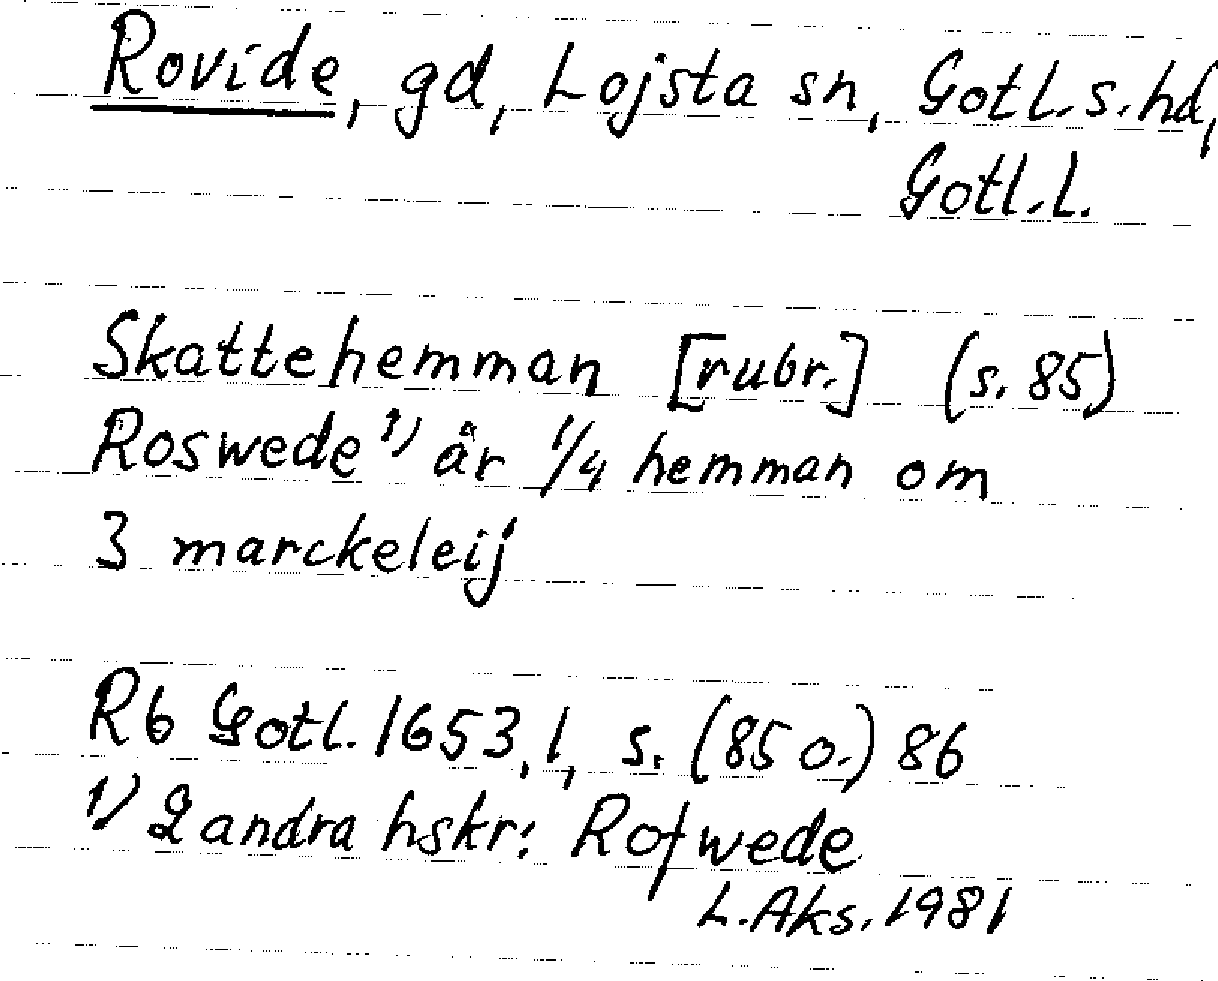 Rovide, gd, Lojsta sn, Gotl. s. hd,
Gotl. l.
Skattehemman [rubr.] (s. 85)
Roswede 1) är 1/4 hemman om
3 marckeleij
Rb Gotl. 1653, 1, s. (85 o.) 86
1) 2 andra hskr: Rofwede
L. Aks. 1981